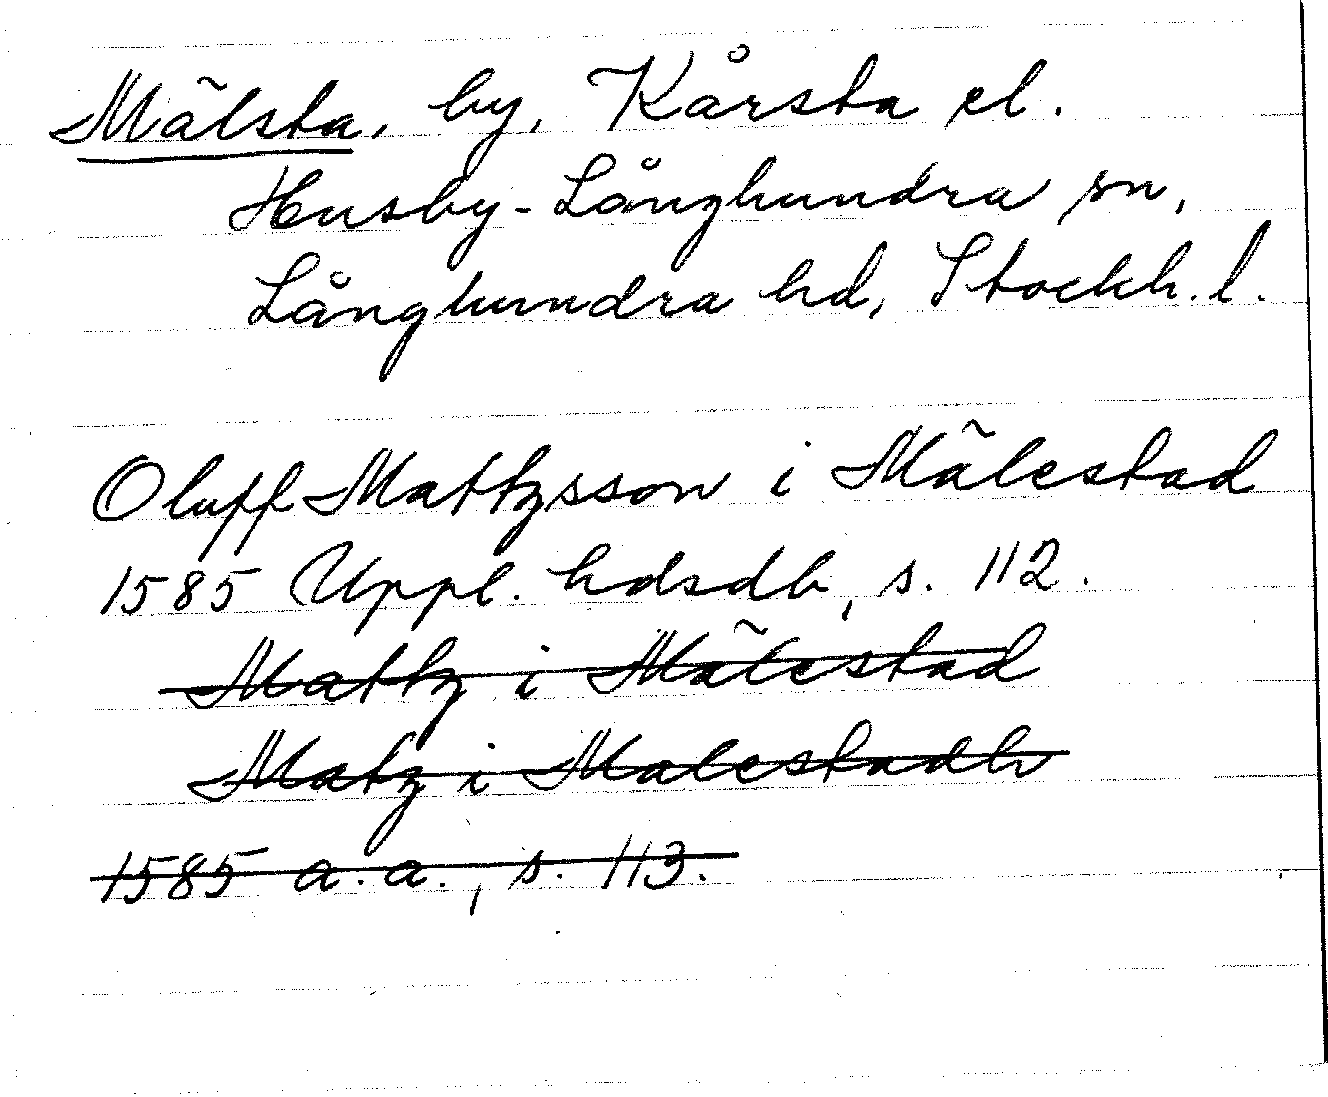 Mälsta, by, Kårsta el.
Husby-Långhundra sn,
Långhundra hd, Stockh. l.
Oluff Mattzsson i Mälestad
1585 Uppl. hdsdb, s. 112.
Mattz i Mälestad
Matz i Malestadh
1585 a. a., s. 113.